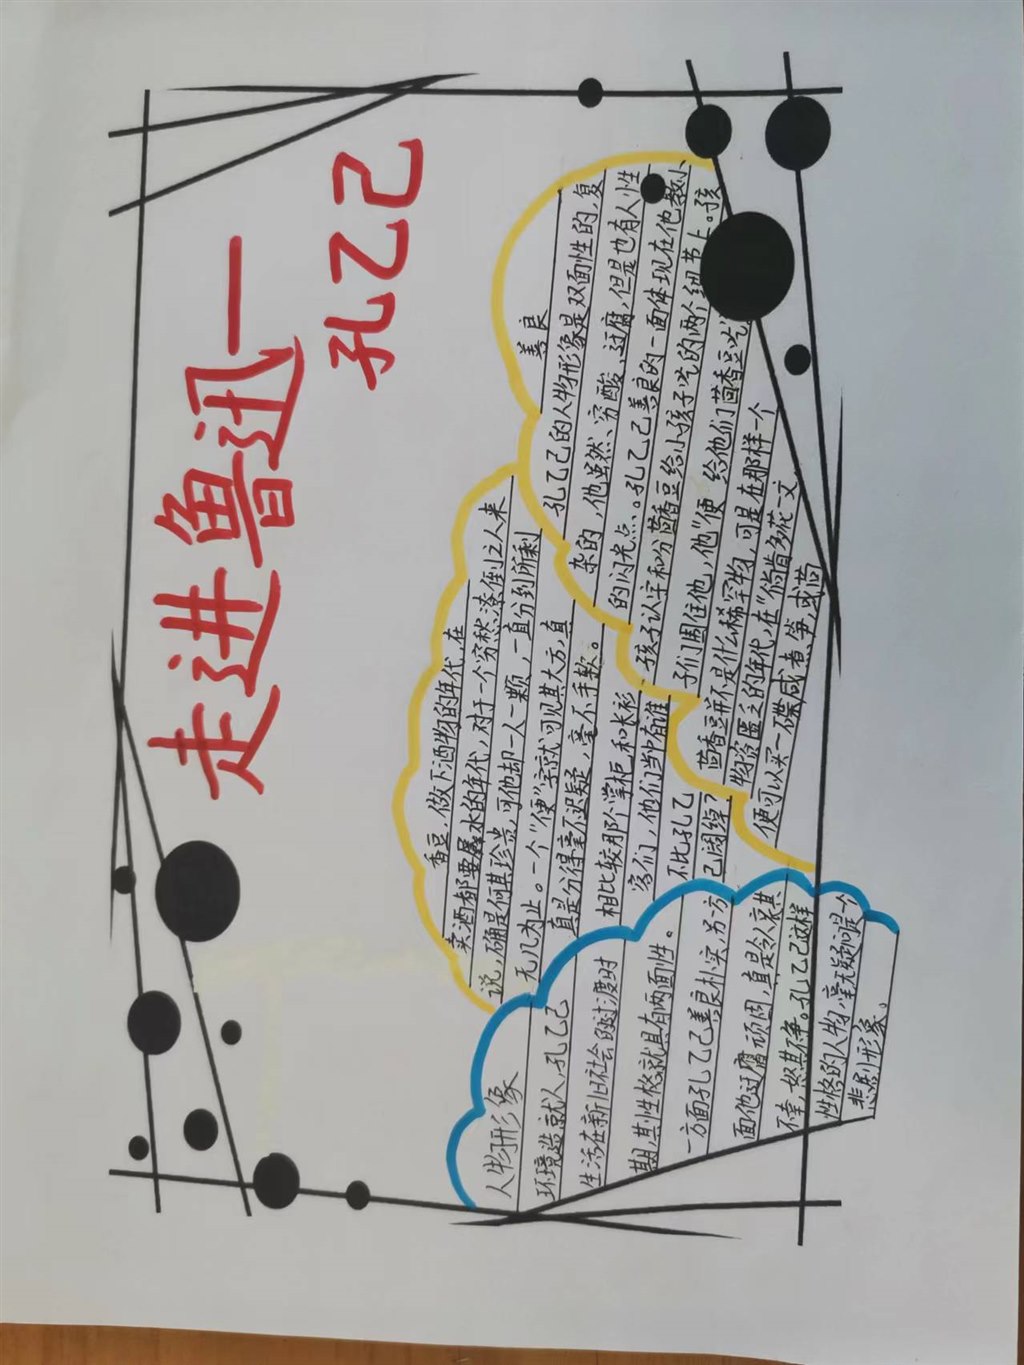 走进鲁迅一
孔乙己
善良
孔乙己的人物形象是双面性的,复
杂的,他虽然、穷酸、迂腐,但是也有人性
的闪光点。孔乙己善良的一面体现在他教小
孩子认字和分茴香豆给小孩子吃的两个细节上。孩
子们围住他,他“便 给他们茴香豆吃
茴香豆并不是什么稀罕物,可是在那样一个
物资匮乏的年代,在“倘肯多花一文
便可以买一碟咸煮笋或茴
香豆,做下酒物的年代,在
卖酒都要羼水的年代,对于一个穷愁潦倒之人来
说,确是何其珍贵,可他却一人一颗,一直分到所剩
无几为止。一个“便”字就可见其大方,直
直是分得毫不迟疑,毫不手软。
相比较那个掌柜和长衫
客们,他们当中有谁
不比孔乙
己阔绰?
人物形象
环境造就人,孔乙己
生活在新旧社会的过渡时
期,其性格就具有两面性。
一方面孔乙己善良朴实,另方
面他迂腐顽固,直是令人哀其
不幸,怒其不争。孔乙己这样
性格的人物,毫无疑问是个
悲剧形象。